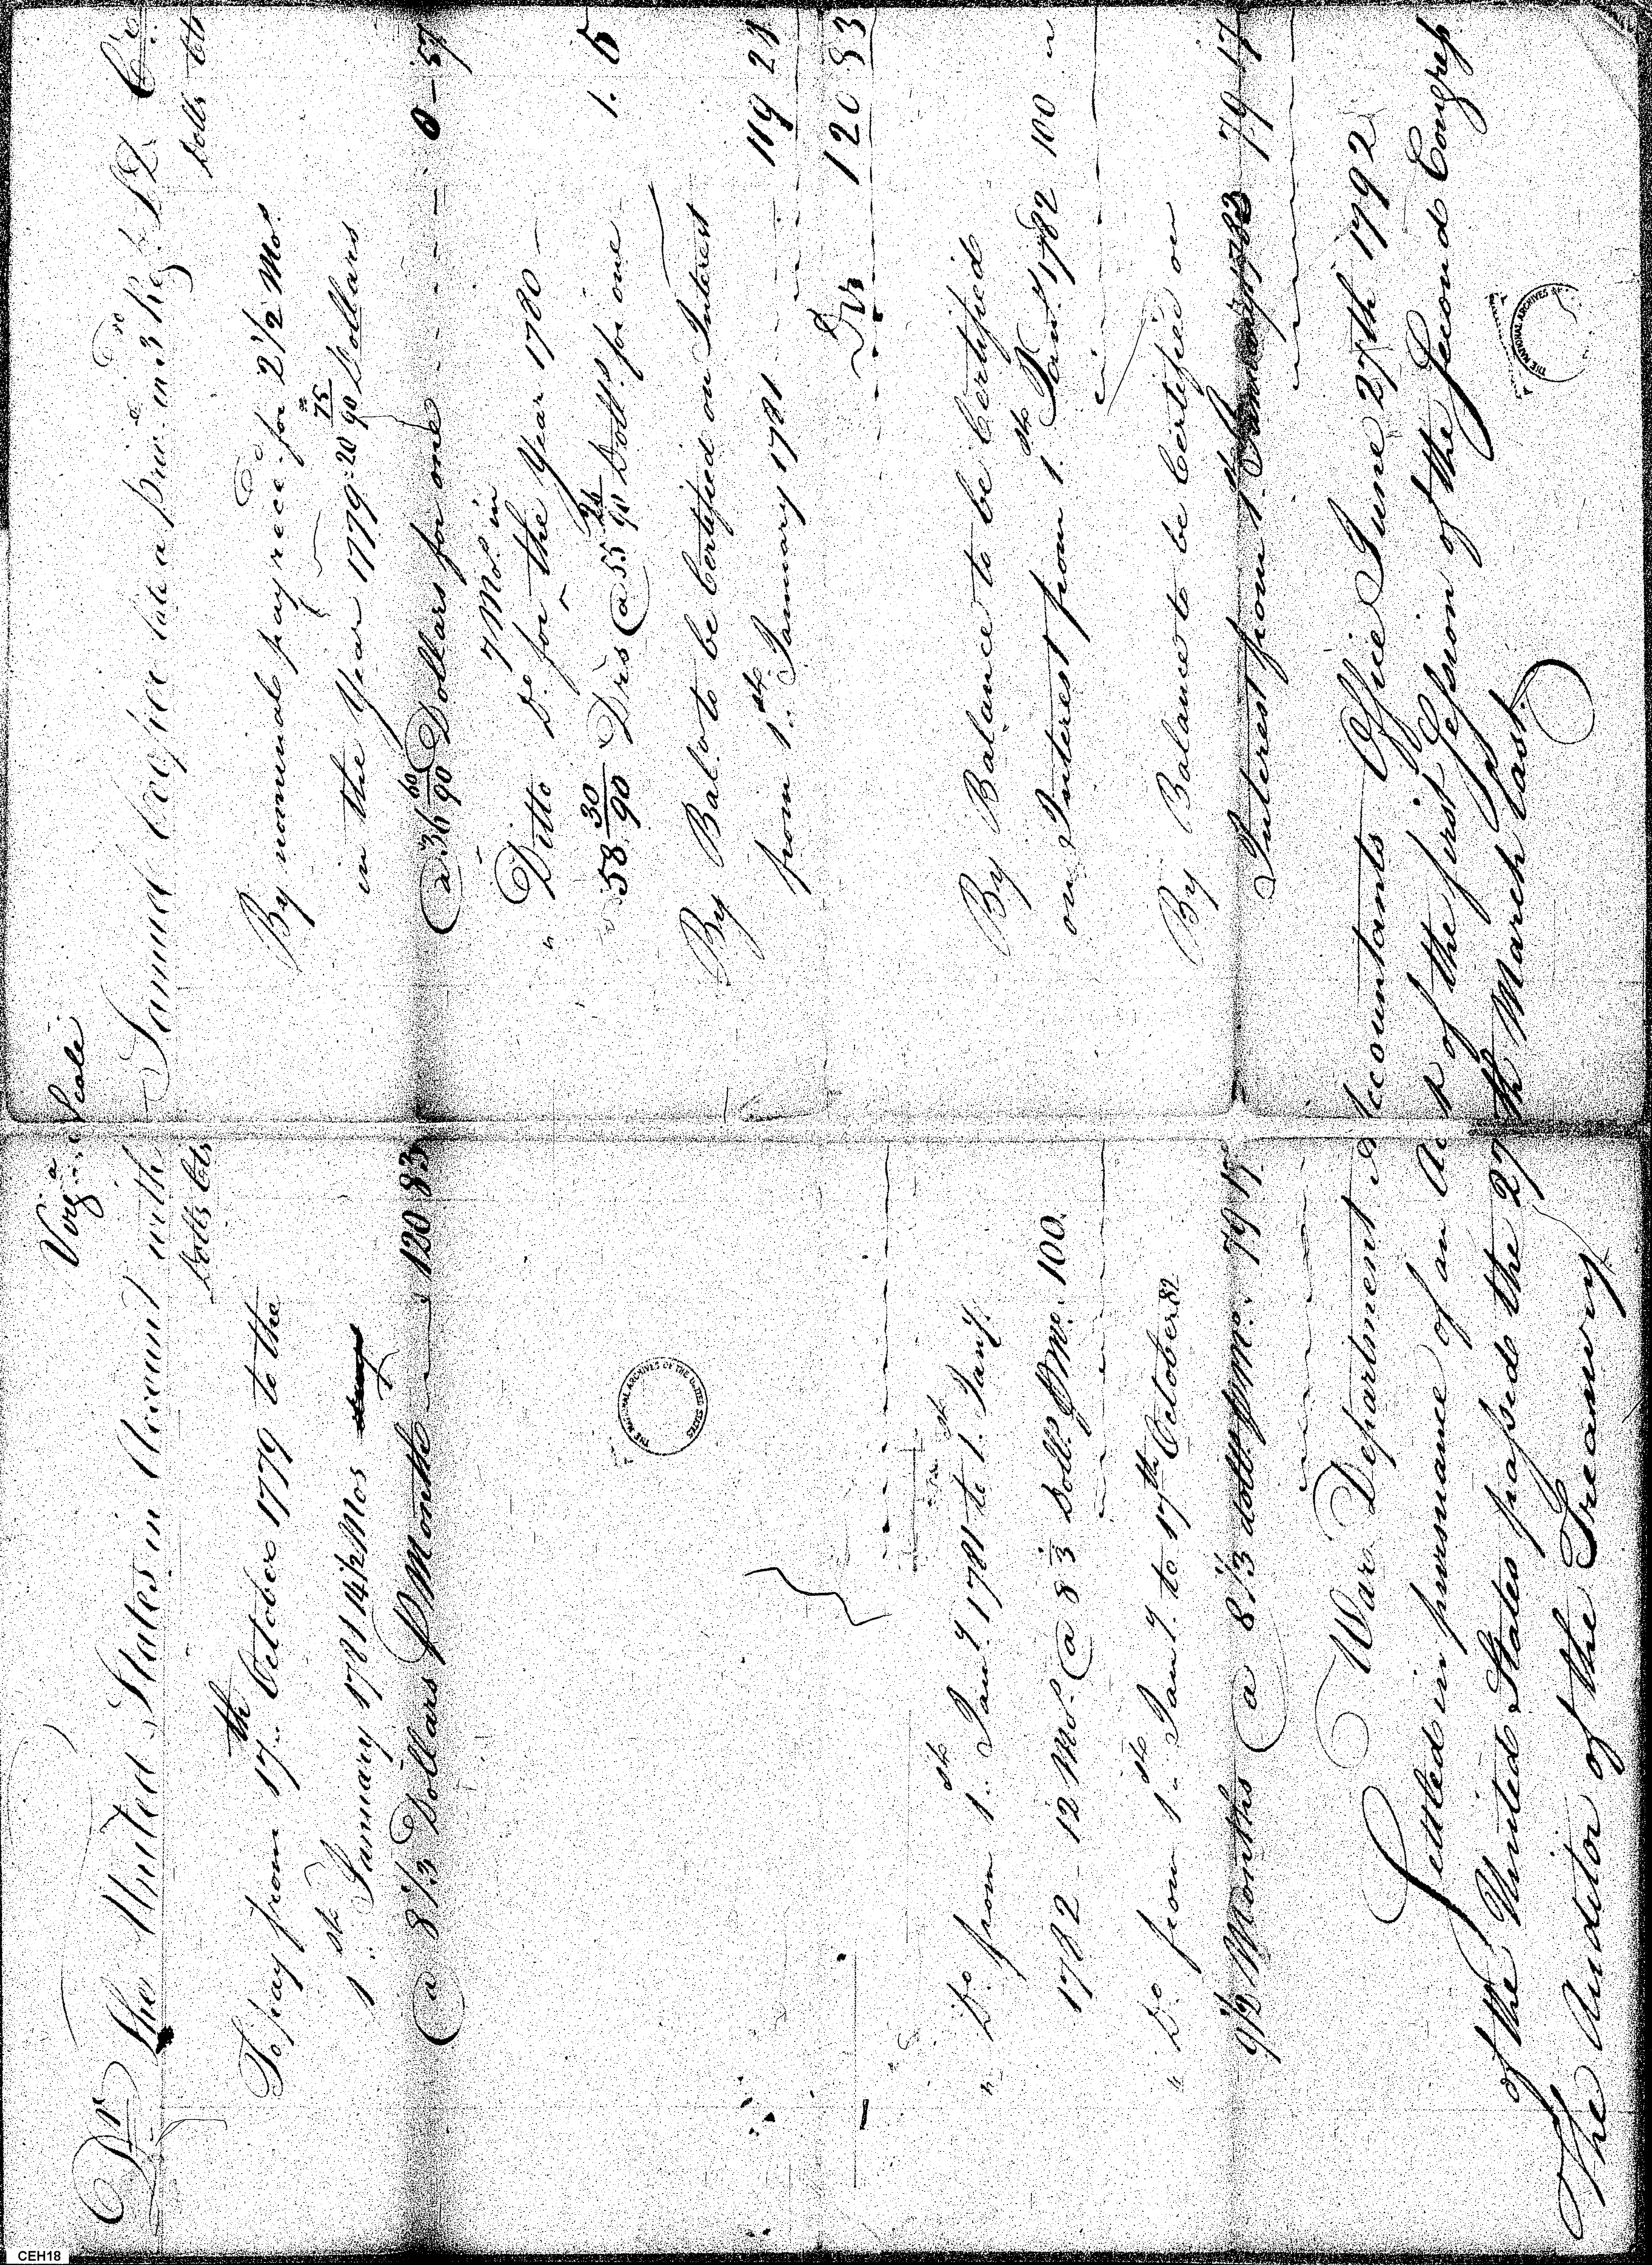 Virg.a Scale
Dr The United States in Account with
Dolls Cts
To pay from 17th October 1779 to the
1st January 1781 14 1/2 Mos
@ 8 1/3 Dollars P Month 120 83
" Do from 1st Jany 1781 to 1st Jany
1782 - 12 Mos @ 8 1/3 Dolls P Mo. 100.
" Do from 1st Jany to 17th October 82
9 1/2 Months @ 8 1/3 dolls P Mo. 79 17
Samuel late a priv. in 3 Reg. Cr
Dolls Cts
By nominal pay rece. for 2 1/2 Mos
in the Year 1779 - 20 75/90 Dollars
@ 36 60/90 Dollars for one 0 - 57
7 Mos in
" Ditto Do for the Year 1780 -
58 30/90 Drs @ 55 Dolls for one 1. 5
By Bal. to be Certified on Interest
from 1st January 1781 119 21
Drs 120 83
By Balance to be Certified
on Interest from 1st Jany 1782 100 "
By Balance to be Certified on
Interest from 1st January 1783 79 17
War Department Accountants Office June 27th 1792
Settled in pursuance of an Act of the first Session of the Second Congress
of the United States passed the 27th March last.
The Auditor of the Treasury
THE NATIONAL ARCHIVES OF THE UNITED STATES
THE NATIONAL ARCHIVES
CEH18